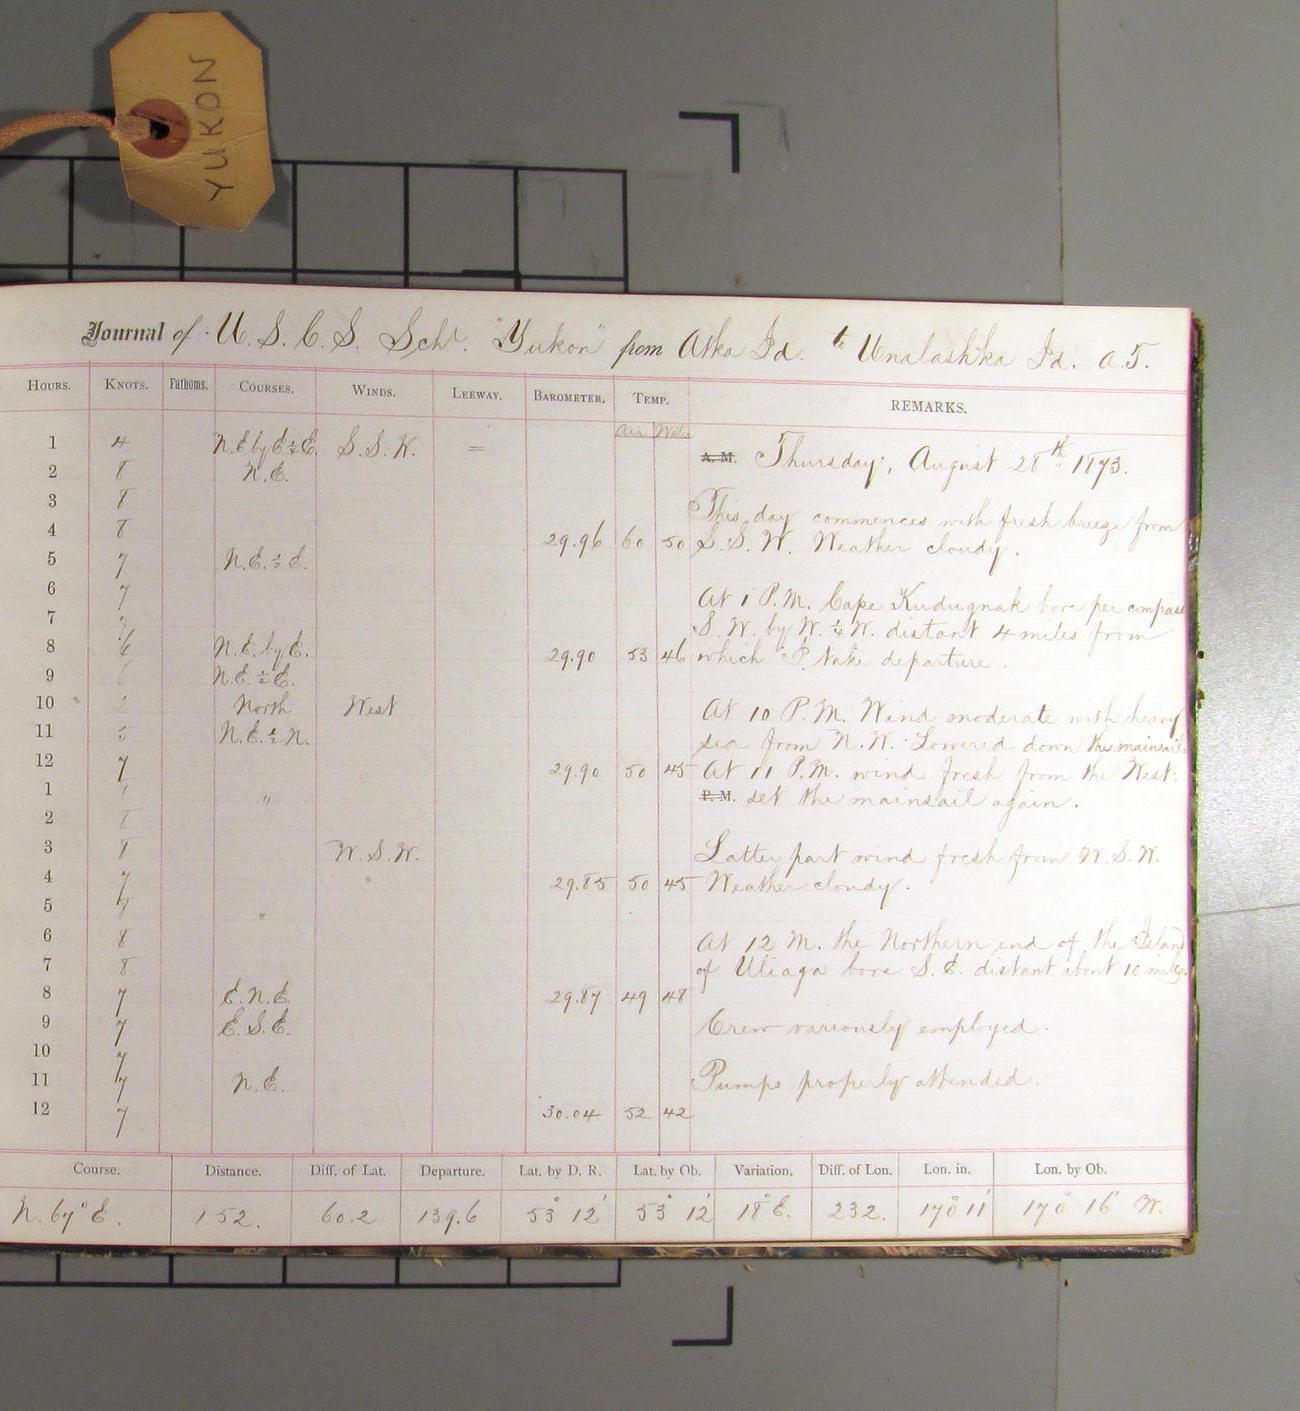 YUKON
Journal of U. S. C. S. Schr. "Yukon" from Atka Id. to Unalashka Id. A.T.
HOURS. KNOTS. Fathoms. COURSES. WINDS. LEEWAY. BAROMETER. TEMP. REMARKS.
Air Water
1 4 N.E by E ½ E. S. S. W. =
A. M. Thursday, August 28th 1873.
2 8 N.E.
3 8
This day commences with fresh breeze from
4 8 29.96 60 50 S. S. W. Weather cloudy.
5 7 N.E. ½ E.
6 7
At 1 P.M. Cape Kudugnak bore per compass
7 7
S. W. by W. ¼ W. distant 4 miles from
8 6 N.E. by E. 29.90 53 46 which P. take departure.
9 6 N.E. ½ E.
10 2 North West
At 10 P.M. Wind moderate with heavy
11 5 N.E. ½ N.
sea from N.W. Lowered down the mainsail.
12 7 29.90 50 45 At 11 P.M. wind fresh from the West.
1 "
P. M. set the mainsail again.
2 8
3 8 W. S. W.
Latter part wind fresh from W. S. W.
4 7 29.85 50 45 Weather cloudy.
5 8 "
6 8
At 12 M. the Northern end of the Island
7 8
of Uliaga bore S. E. distant about 10 miles.
8 7 E. N. E 29.87 49 48
9 7 E. S. E.
Crew variously employed.
10 7
11 7 N. E.
Pumps properly attended.
12 7 30.04 52 42
Course. Distance. Diff. of Lat. Departure. Lat. by D. R. Lat. by Ob. Variation. Diff. of Lon. Lon. in. Lon. by Ob.
N. 67° E. 152. 60.2 139.6 53° 12' 53° 12' 18° E. 232. 170° 11' 170° 16' W.